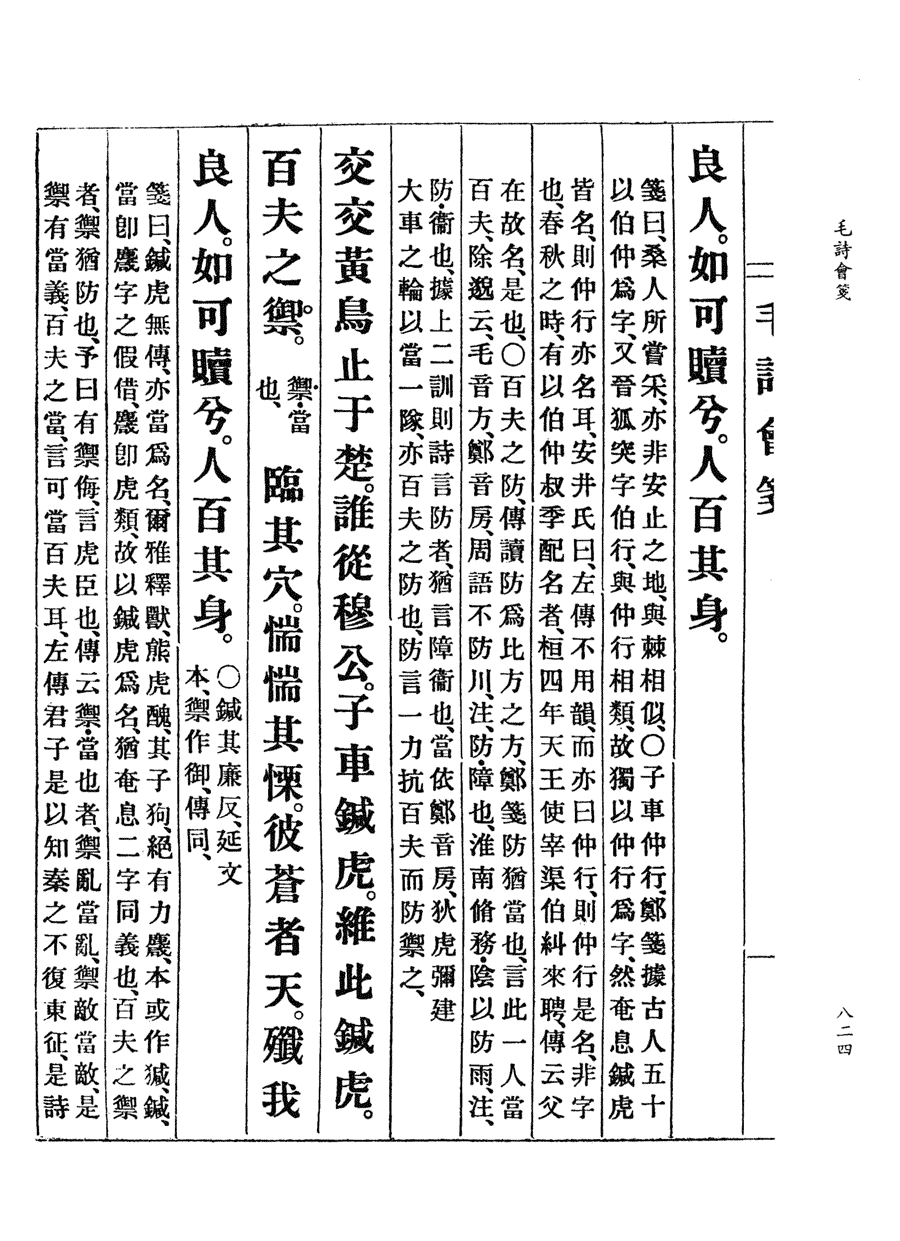 毛詩會箋
八二四
毛詩會箋
良人。如可贖兮。人百其身。
箋曰、桑人所嘗采、亦非安止之地、與棘相似、〇子車仲行、鄭箋據古人五十
以伯仲爲字、又晉狐突字伯行、與仲行相類、故獨以仲行爲字、然奄息鍼虎
皆名、則仲行亦名耳、安井氏曰、左傳不用韻、而亦曰仲行、則仲行是名、非字
也、春秋之時、有以伯仲叔季配名者、桓四年天王使宰渠伯糾來聘、傳云父
在故名、是也、〇百夫之防、傳讀防爲比方之方、鄭箋防猶當也、言此一人當
百夫、除邈云、毛音方、鄭音房、周語不防川、注、防・障也、淮南脩務・陰以防雨、注、
防・衞也、據上二訓則詩言防者、猶言障衞也、當依鄭音房、狄虎彌建
大車之輪以當一隊、亦百夫之防也、防言一力抗百夫而防禦之、
交交黃鳥止于楚。誰從穆公。子車鍼虎。維此鍼虎。
百夫之禦。
禦・當
也、
臨其穴。惴惴其慄。彼蒼者天。殲我
良人。如可贖兮。人百其身。
〇鍼其廉反、延文
本、禦作御、傳同、
箋曰、鍼虎無傳、亦當爲名、爾雅釋獸、熊虎醜、其子狗、絕有力麙、本或作㺂、鍼、
當卽麙字之假借、麙卽虎類、故以鍼虎爲名、猶奄息二字同義也、百夫之禦
者、禦猶防也、予曰有禦侮、言虎臣也、傳云禦・當也者、禦亂當亂、禦敵當敵、是
禦有當義、百夫之當、言可當百夫耳、左傳君子是以知秦之不復東征、是詩